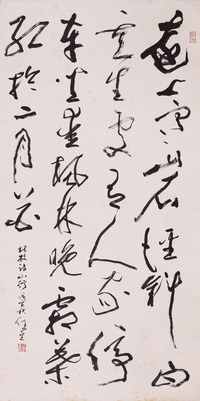 遠上寒山石徑斜白
雲生處有人家停
車坐愛楓林晚霜葉
紅於二月花
杜牧詩山行